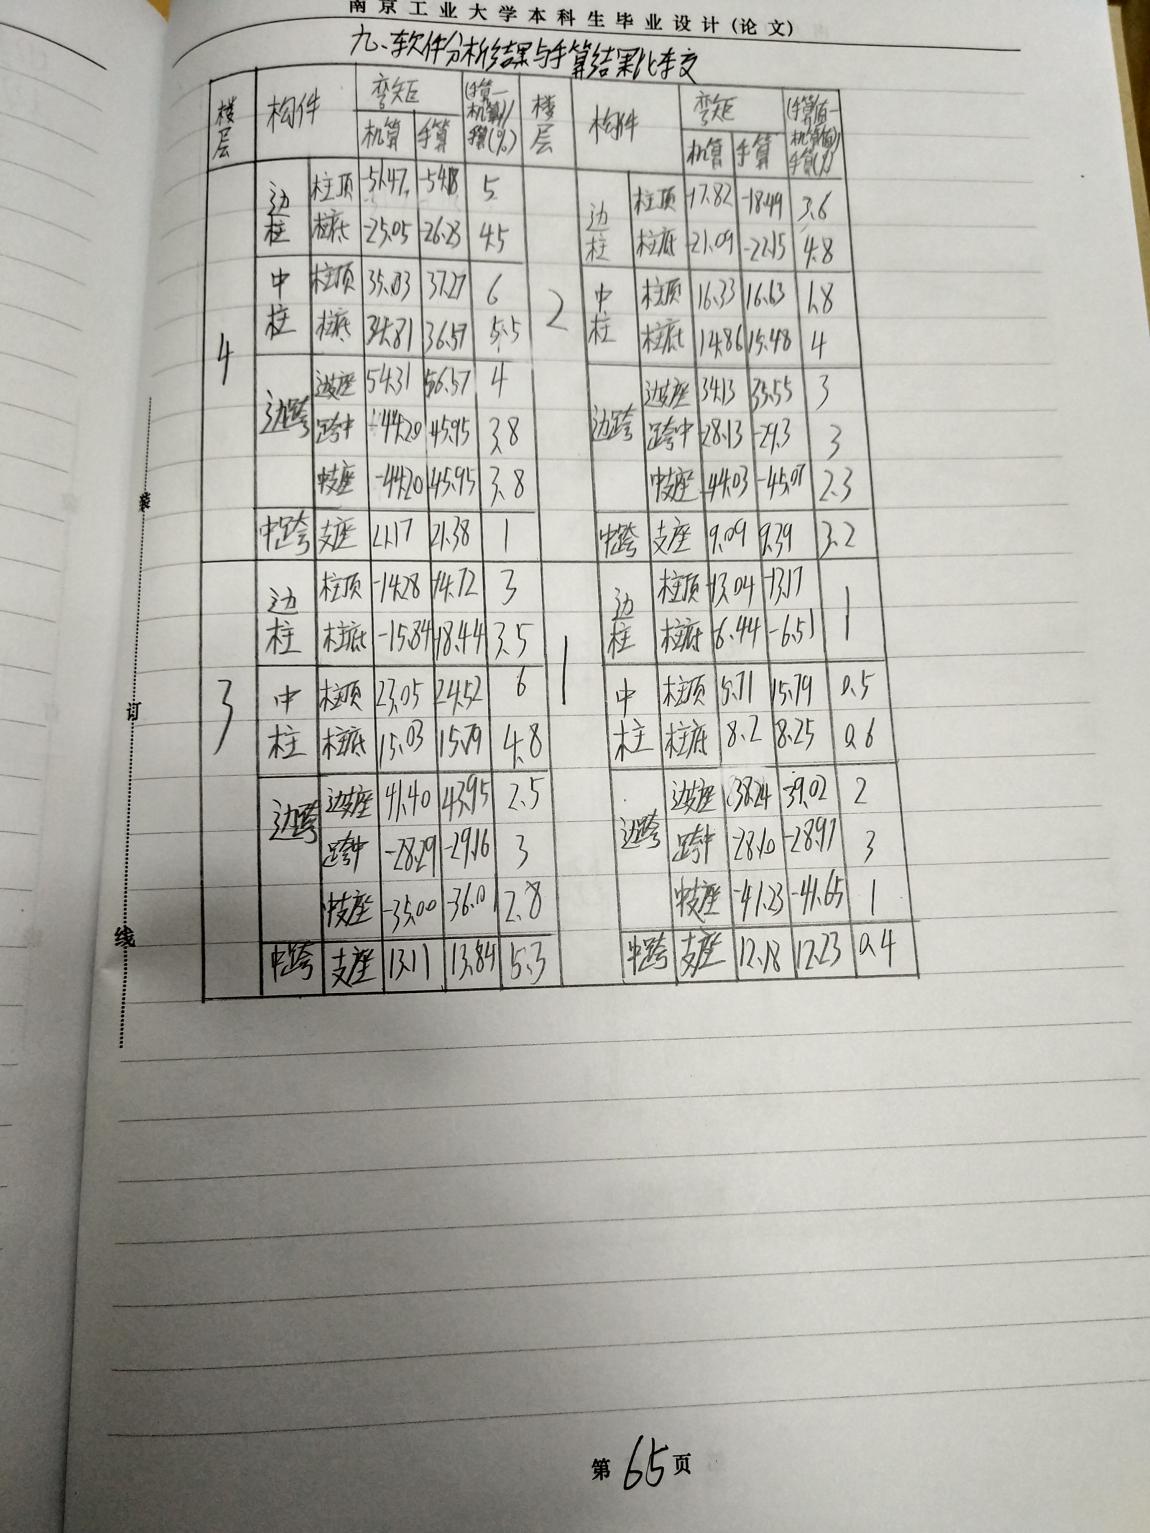 南京工业大学本科生毕业设计(论文)
九、软件分析结果与手算结果比较
楼层 构件 弯矩 (手算-机算)/手算(%) 楼层 构件 弯矩 (手算值-机算值)/手算(%)
机算 手算 机算 手算
4 边柱 柱顶 -51.47 -54.18 5 2 边柱 柱顶 -17.82 -18.49 3.6
柱底 -25.05 -26.23 4.5 柱底 -21.09 -22.15 4.8
中柱 柱顶 35.03 37.27 6 中柱 柱顶 16.33 16.63 1.8
柱底 34.81 36.57 5.5 柱底 14.86 15.48 4
边跨 边支座 54.31 56.57 4 边跨 边支座 34.13 35.55 3
跨中 -44.20 45.95 3.8 跨中 -28.13 -29.3 3
中支座 -44.20 45.95 3.8 中支座 44.03 -45.07 2.3
中跨 支座 21.17 21.38 1 中跨 支座 9.09 9.39 3.2
3 边柱 柱顶 -14.28 -14.72 3 1 边柱 柱顶 -13.04 -13.17 1
柱底 -15.84 18.44 3.5 柱底 6.44 -6.51 1
中柱 柱顶 23.05 24.52 6 中柱 柱顶 15.71 15.79 0.5
柱底 15.03 15.79 4.8 柱底 8.2 8.25 0.6
边跨 边支座 41.40 43.95 2.5 边跨 边支座 38.24 39.02 2
跨中 -28.29 -29.16 3 跨中 -28.10 -28.97 3
中支座 -35.00 -36.01 2.8 中支座 -41.23 -41.65 1
中跨 支座 13.11 13.84 5.3 中跨 支座 12.18 12.23 0.4
装
订
线
第65页